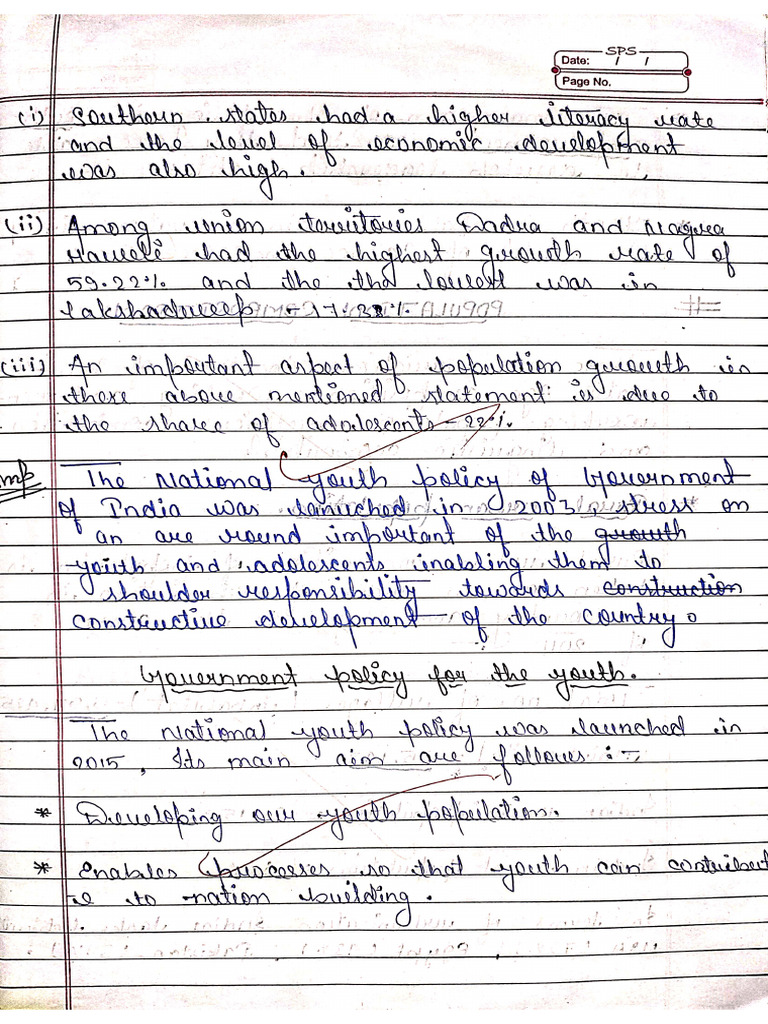 SPS
Date: / /
Page No.
(i) Southern states had a higher literacy rate
and the level of economic development
was also high.
(ii) Among union territories Dadra and Nagra
Haveli had the highest growth rate of
59.22% and the the lowest was in
Lakshadweep - 17.
(iii) An important aspect of population growth in
these above mentioned statement is due to
the share of adolescents - 22%.
Imp The National youth policy of Government
of India was launched in 2003, stress on
an are round important of the growth
youth and adolescents inabling them to
shoulder responsibility towards construction
constructive development of the country.
Government policy for the youth.
The National youth policy was launched in
2015, Its main aim are follows :-
* Developing our youth population.
* Enables processes so that youth can contribut
e to nation building.